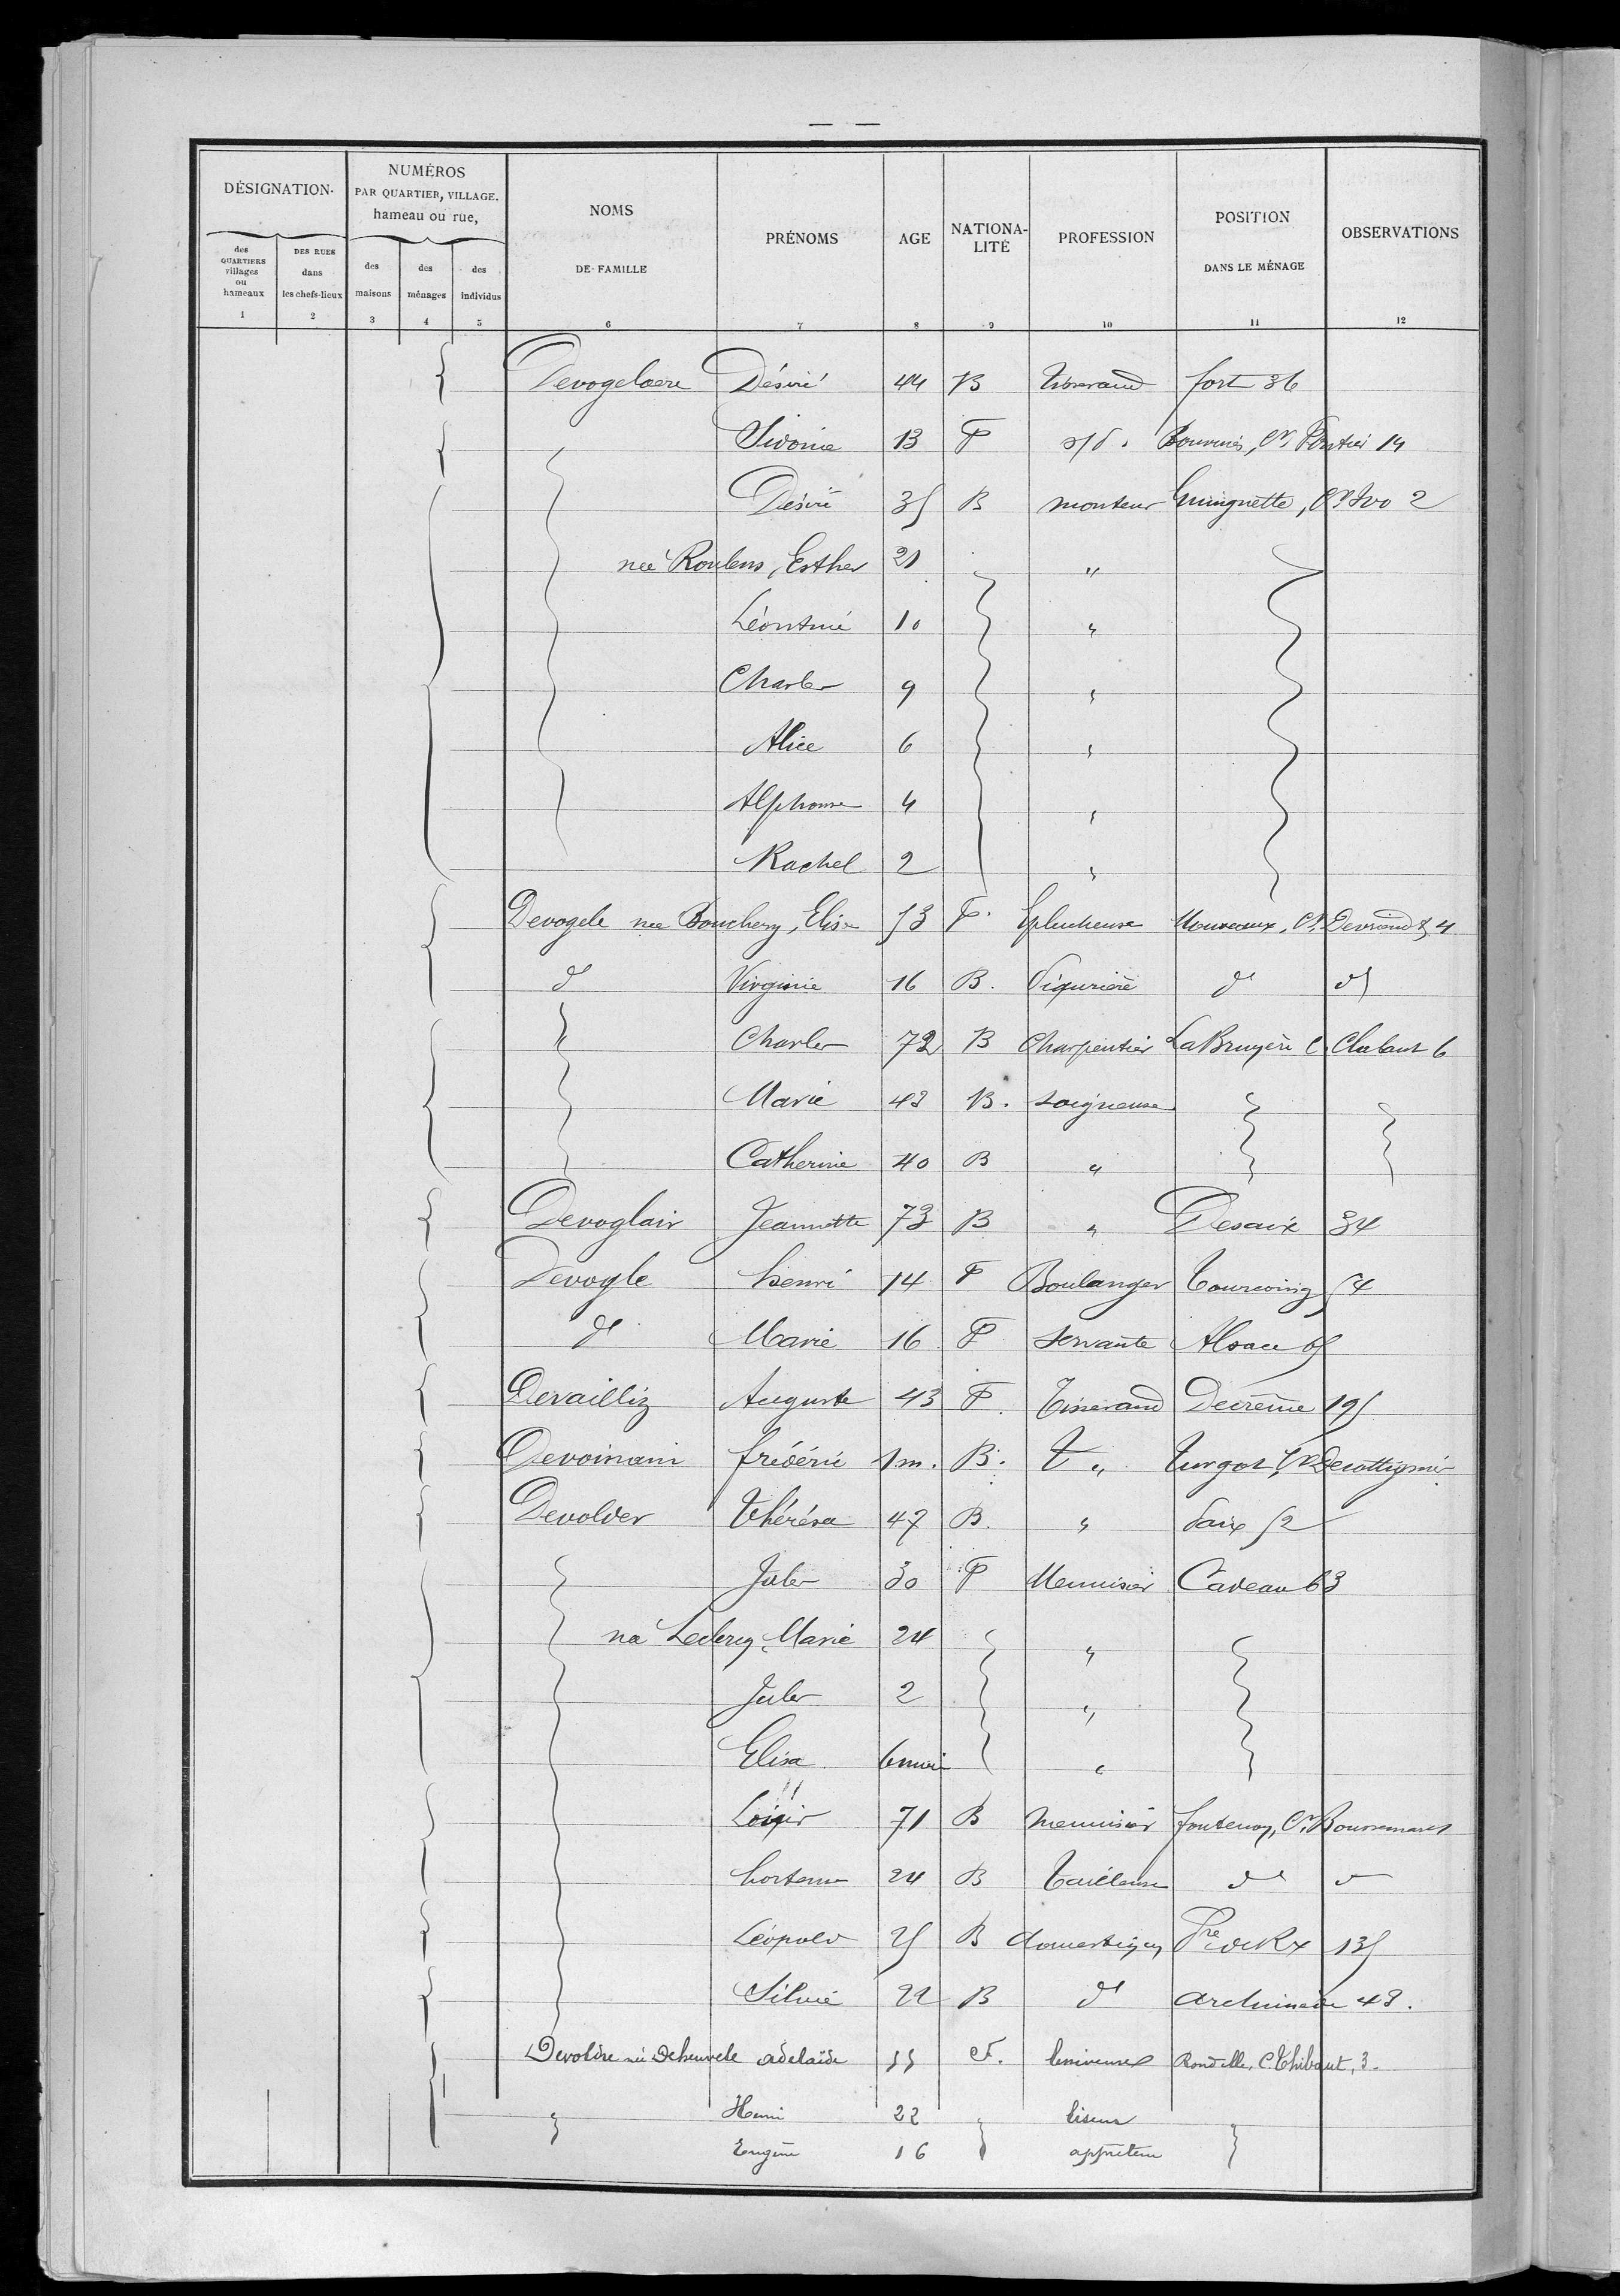 — —
DÉSIGNATION.
NUMÉROS
PAR QUARTIER, VILLAGE.
hameau ou rue,
NOMS
DE FAMILLE
PRÉNOMS
AGE
NATIONA-
LITÉ
PROFESSION
POSITION
DANS LE MÉNAGE
OBSERVATIONS
des
QUARTIERS
villages
ou
hameaux
DES RUES
dans
les chefs-lieux
des
maisons
des
ménages
des
individus
1 2 3 4 5 6 7 8 9 10 11 12
Devogelaere Désiré 44 B Tisserand fort 36
Sidonie 13 F s/d. Bouvines, Cr Pontier 14
Désiré 35 B monteur Guinguette, Cr Ivo 2
née Roulens, Esther 21 "
Léontine 10 "
Charles 9 "
Alice 6 "
Alphonse 4 "
Rachel 2 "
Devogele née Bouchery, Elise 53 F. Eplucheuse Mouveaux, Cr. 4
d° Virginie 16 B. Piqurière d° d°
Charles 72 B Charpentier La Bruyère C. 6
Marie 43 B. soigneuse
Catherine 40 B "
Devoglair Jeannette 73 B " Desaix 34
Devogle henri 14 F Boulanger Tourcoing 54
d° Marie 16 F servante Alsace 65
Devailliz Auguste 43 F. Tisserand Decrême 195
Devoinain frédéric 1 m. B. " Turgot, Cr Decottignie
Devolder Thérésa 47 B. " Paix 52
Jules 30 F Menuisier Cadeau 63
née Leclercq, Marie 24 "
Jules 2 "
Elisa 6 mois "
71 B menuisier fontenoy, Cr.
hortense 24 B Tailleuse d° d°
Léopold 25 B domestique Pre de Rx 135
Silvie 22 B d° archimède 43.
Devoldre née Deheuvele adelaïde 55 F. Rondelle, C. Thibaut, 3.
Henri 22 liseur
Eugène 16 apprêteur